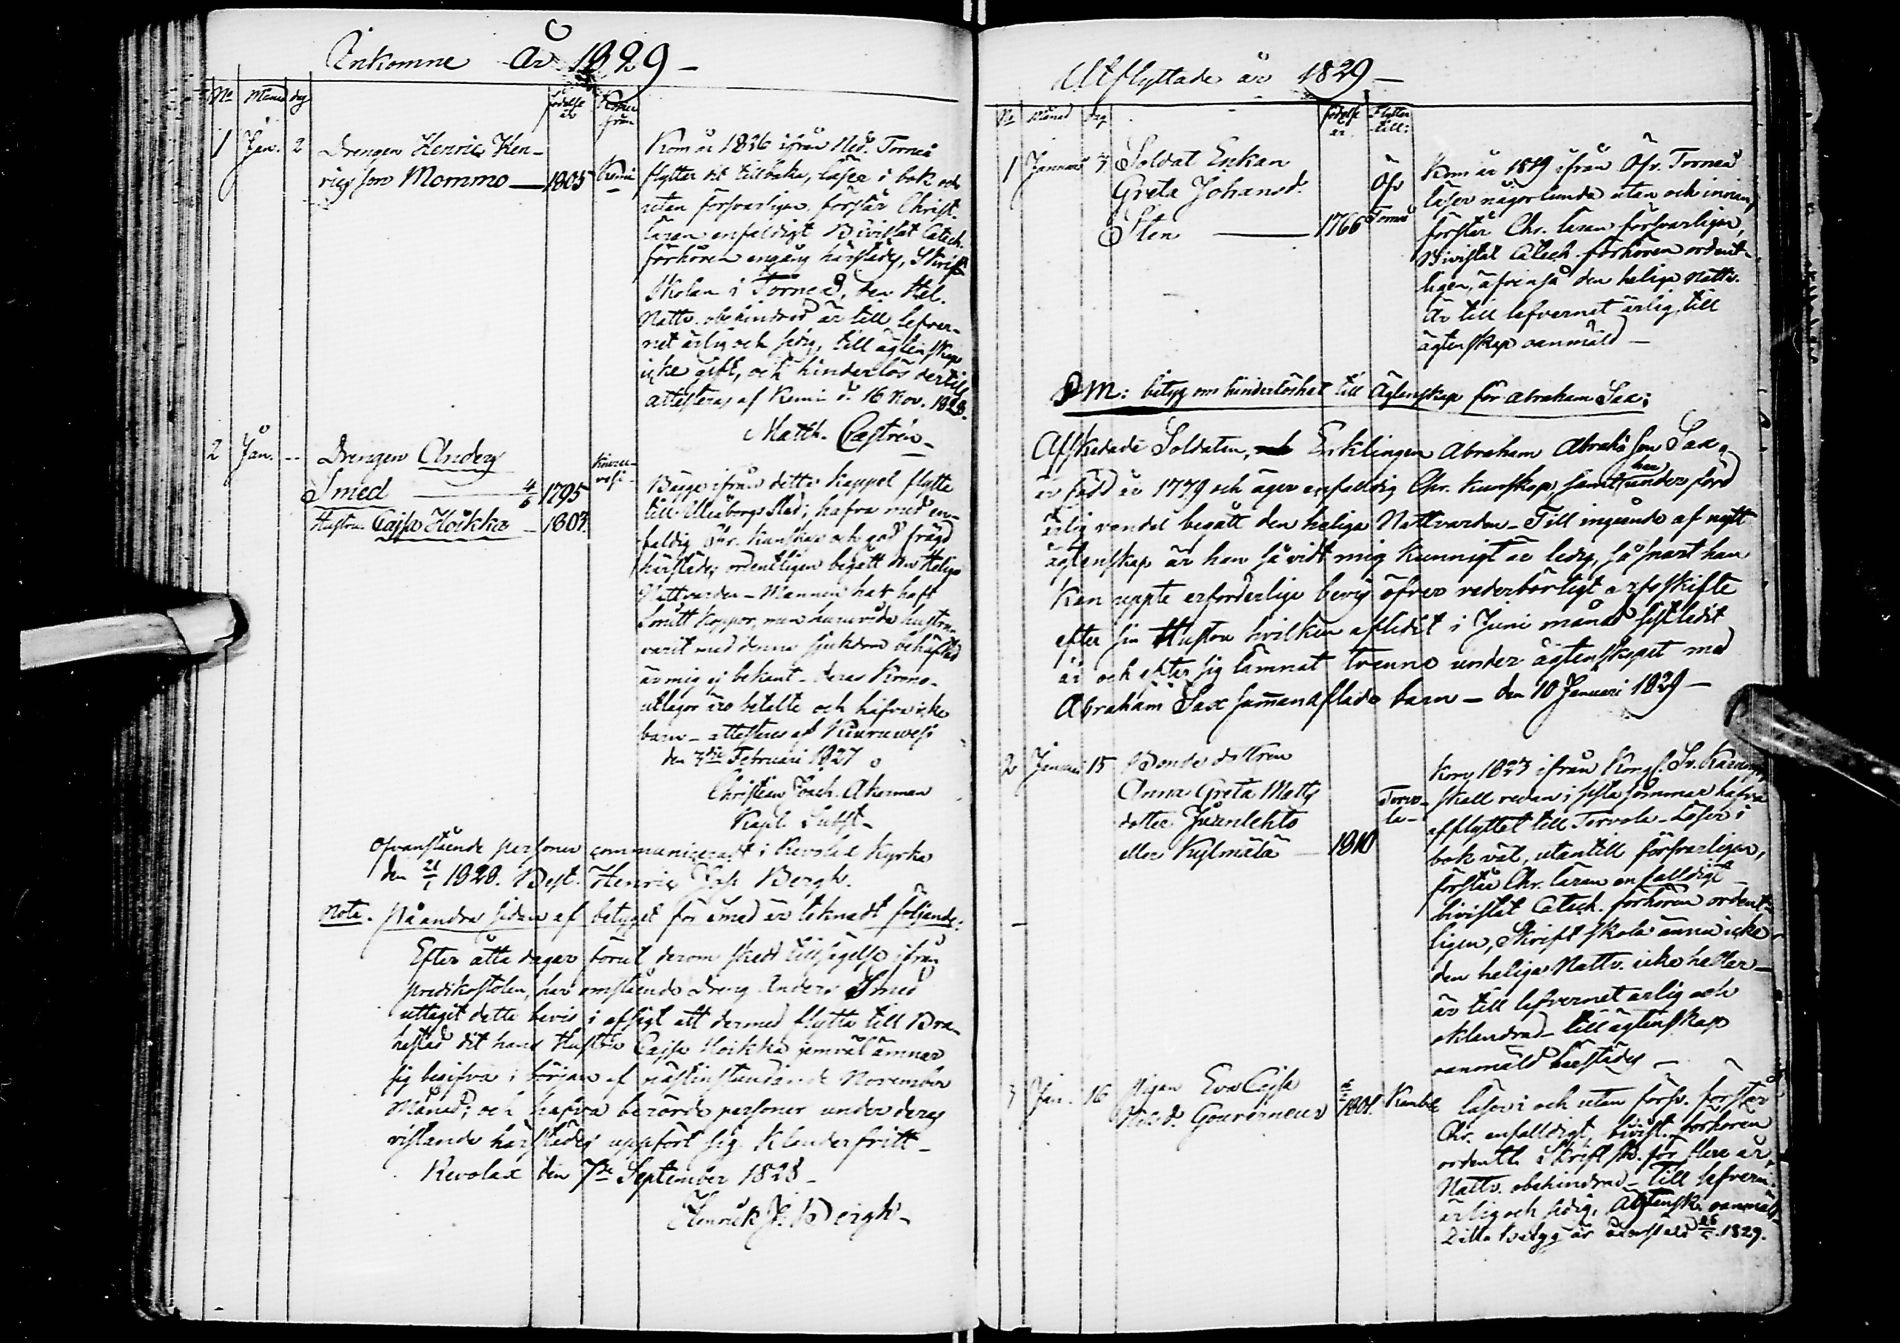 Ankomne År 1829 –
No Månad dag födelse år Kommer från
1 Jan. 2 Drengen Henric Hen-
ricsson Mommo — 1805 Kemi
Kom år 1826 ifrån Ned. Torneå
flytter dit tillbaka, läser i bok och
utan försvarligen, förstår Christ.
läran enfaldigt Bivistat Catech.
förhören engång härstädes, Skrift
Skolan i Torneå, den Hel.
Nattv. obehindrad är till lefver-
net ärlig och sedig, till ägtenskap
icke gift, och hinderlös dertill
attesteras af Kemi d. 16 Nov. 1828.
Matth. Castrén –
2 Jan. – Drengen Anders
Smed — 4/6 1795
Hustrun Cajsa Hoikka – 1803.
Kiuru-
vesi –
ifrån detta Kappel flytte
till Uleåborgs Stad; hafva med en-
faldig Chr. Kunskap och god frägd
härstädes ordentligen begått den Heliga
Nattvarden – Mannen har haft
Smått Koppor, men huruvida hustrun
varit med denna sjukdom behäftad
är mig ej bekant – deras Krono-
utlagor äro betalte och hafva icke
barn – attesteras af Kiuruwesi
den 7de Februari 1827
Christian Joach. Akerman
Kapl. Subst. –
Ofvanstående personer communicerat i Revolax Kyrka
den 21/1 1828. Best. Henric Joh Bergh.
Nota. På andra sidan af betyget för Smed är teknadt följande:
Efter åtta dagar förut derom skedd tillsägelse ifrån
predikostolen, har omstående Dreng Anders Smed
uttagit detta bevis i afsigt att dermed flytta till Bra-
hestad dit hans Hustru Cajsa Hoikka jemväl ämnar
sig begifva i början af nästinstundande November
Månad; och hafva berörde personer under deras
vistande härstädes uppfört sig klanderfritt –
Revolax den 7de September 1828 –
Henrick J. Bergh –
Utflyttade år 1829 –
No Månad dag födelse år Flytter till:
1 Januari 7 Soldat Enkan
Greta Johansd.
Sten — 1766 Öfv Torneå
Kom år 1819 ifrån Öfv. Torneå
läser någorlunda utan och innan,
förstår Chr. läran försvarligen,
Bivistat Catech. förhören ordent-
ligen, äfven så den heliga Nattv.
är till lefvernet ärlig, till
ägtenskap oanmäld –
PM: betyg om hinderlöshet till Ägtenskap för Abraham Sax;
Afskedade Soldaten, Enklingen Abraham Abrahs son Sax,
är född år 1779 och äger enfaldig Chr. Kunskap, samt har under förd
ärlig vandel begått den heliga Nattvarden – Till ingående af nytt
ägtenskap är han så vidt mig kunnigt är ledig, så snart han
kan uppte erforderlige bevis öfver vederbörligt arfskifte
efter sin Hustru hvilken aflidit i Juni månad sistledit
år och efter sig lämnat trenne under ägtenskapet med
Abraham Sax sammanaflade barn – den 10 Januari 1829 –
2 Januari 15 Bonde dottren
Anna Greta Matts
dotter Juanlehto
eller Kylmälä — 1810
Tervo-
la –
Kom 1823 ifrån
Skall redan i sista sommar hafva
afflyttat till Tervola – Läser i
bok väl, utantill försvarligen,
förstår Chr. läran enfalldigt –
bivistat Catech. förhören ordent-
ligen, Skrift skola ännu icke
den heliga Nattv. icke heller –
är till lefvernet ärlig och
oklandrad – till ägtenskap
oanmäld härstädes –
3 Jan. 16 Pigan Eva Cajsa
Gouverneur 1801. Kemi
läser i och utan försv. förstår
Chr. enfalldigt, bivist. förhören
ordentl. Skriftsk. för flere år,
Nattv. obehindrad – Till lefvern.
ärlig och sedig, Ägtensk. oanmäld –
Detta betyg är 1829.